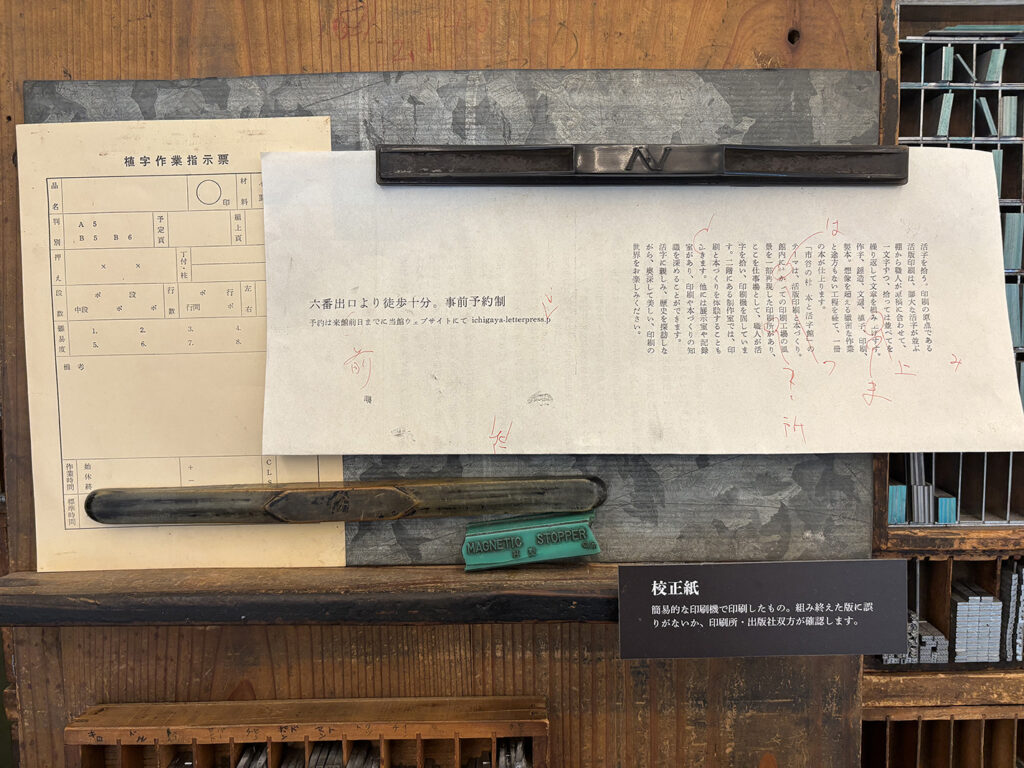 植字作業指示票
品名
印
材料
判別
A5
B5 B6
予定頁
組上頁
押え
× ×
丁付・柱
段数
ポ 段 ポ 行
中段 ポ 行間 ポ
左右
難易度
1. 2. 3. 4.
5. 6. 7. 8.
備考
作業時間
始 休 終
+
−
CLS
標準時間
N
活字を拾う。印刷の原点である
活版印刷は、膨大な活字が並ぶ
棚から職人が原稿に合わせて、
一文字ずつ、拾っては並べてを
繰り返して文章を組み
作字、創造、文選、植字、印刷、
製本。想像を超える緻密な作業
と途方もない工程を経て、一冊
の本が仕上ります。
「市谷の杜 本と活字館」の
テーマは、活版印刷と本づくり。
館内には、かつての印刷工場の風
景を一部再現した印刷所があり、
ここを仕事場として、職人が活
字を拾い、印刷機を回していま
す。二階にある制作室では、印
刷と本づくりを体験するととも
できます。他には展示室や記録
室があり、印刷や本づくりの知
識を深めることができます。
活字に親しみ、歴史を探訪しな
がら、奥深くて美しい、印刷の
世界をお楽しみください。
は
み
上
しま
つ
所
六番出口より徒歩十分。事前予約制
予約は来館前日までに当館ウェブサイトにて ichigaya-letterpress.p
前
MAGNETIC STOPPER
校正紙
簡易的な印刷機で印刷したもの。組み終えた版に誤
りがないか、印刷所・出版社双方が確認します。